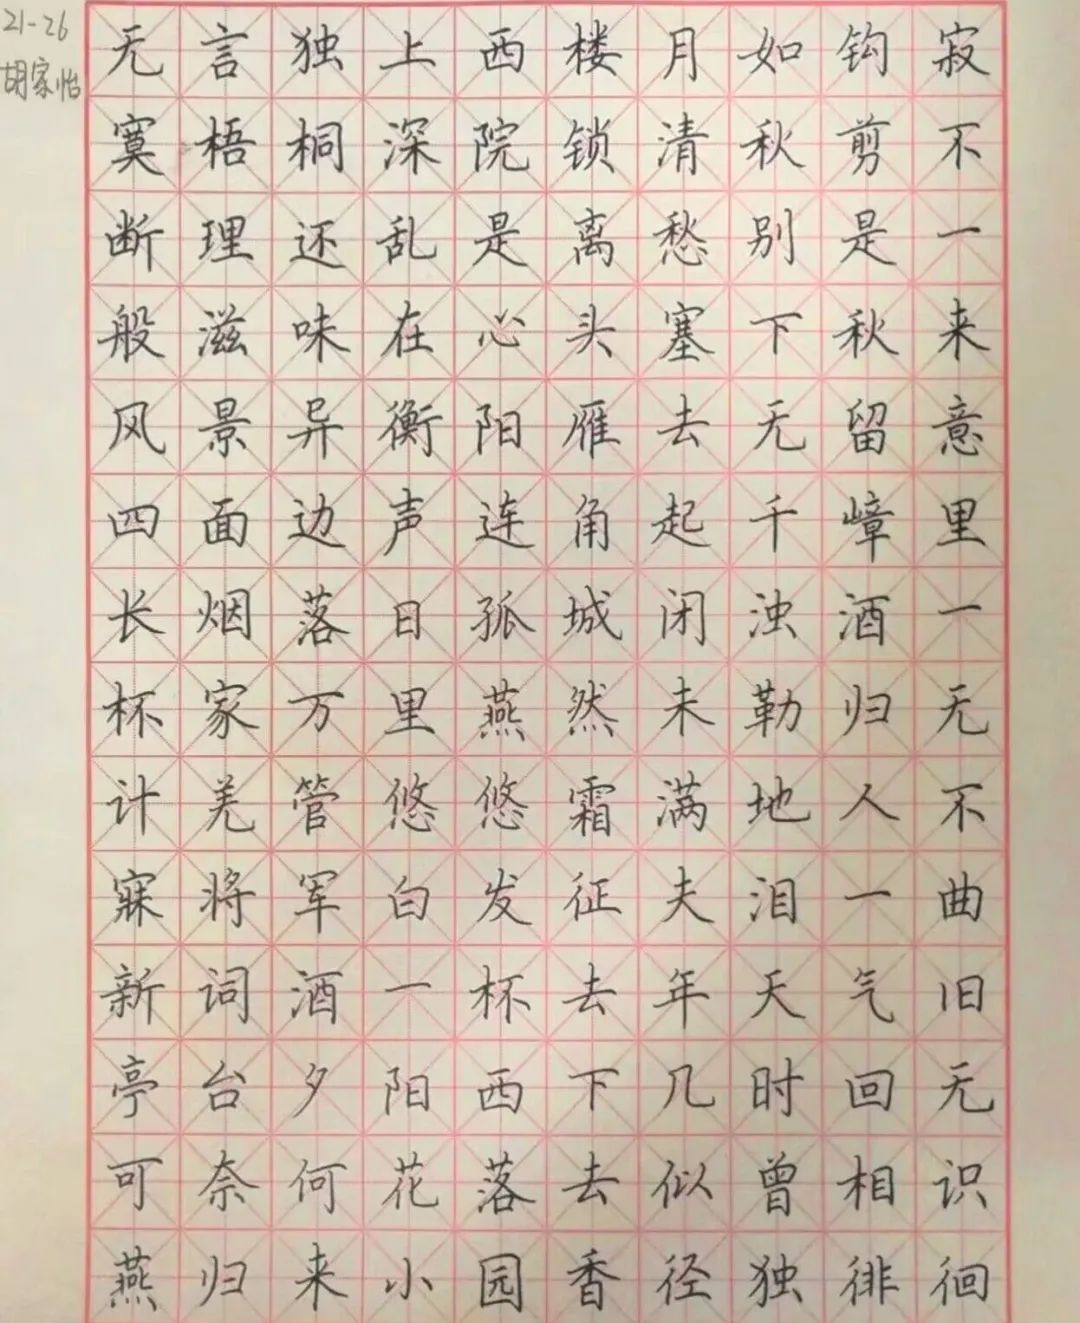 21-26
胡家怡
无言独上西楼月如钩寂
寞梧桐深院锁清秋剪不
断理还乱是离愁别是一
般滋味在心头塞下秋来
风景异衡阳雁去无留意
四面边声连角起千嶂里
长烟落日孤城闭浊酒一
杯家万里燕然未勒归无
计羌管悠悠霜满地人不
寐将军白发征夫泪一曲
新词酒一杯去年天气旧
亭台夕阳西下几时回无
可奈何花落去似曾相识
燕归来小园香径独徘徊